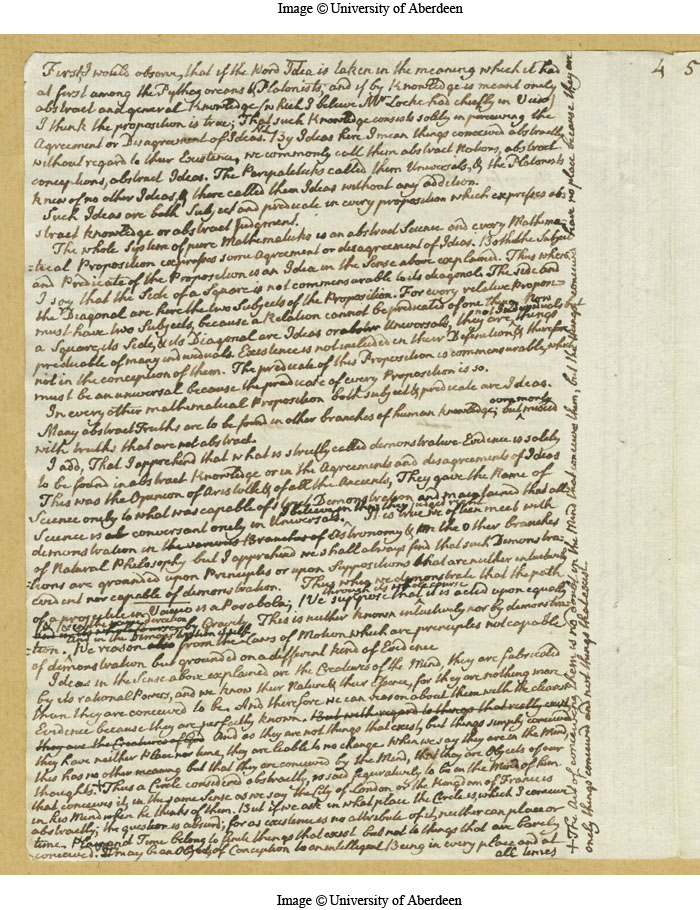 Image © University of Aberdeen
4 5
First, I would observe, that if the Word Idea is taken in the meaning which it had
at first among the Pythagoreans & Platonists, and if by Knowledge is meant onely
abstract and general Knowledge (which I believe Mr Locke had chiefly in View)
I think the proposition is true; That such Knowledge consists solely in perceiving the
Agreement or Disagreement of Ideas. By Ideas here I mean things conceived abstractly
without regard to their Existence, we commonly call them abstract Notions, abstract
conceptions, abstract Ideas. The Peripateticks called them Universals, & the Platonists
knew of no other Ideas, & there called them Ideas without any addition.
Such Ideas are both Subject and predicate in every proposition which expresses ab-
stract knowledge or abstract Judgment.
The whole System of pure Mathematicks is an abstract Science and every Mathema-
-tical Proposition expresses some Agreement or disagreement of Ideas. Both the Subject
and Predicate of the Proposition is an Idea in the Sense above explained. Thus when
I say that the Side of a Square is not commensurable to its diagonal. The side and
the Diagonal are here the two Subjects of the Proposition. For every relative Propon=
must have two Subjects, because a Relation cannot be predicated of one thing. Now
a Square, its Side, & its Diagonal are Ideas or Universals, they are not Individuals but things
predicable of many individuals. Existence is not included in their Definition, & therefore
not in the conception of them. The predicate of this Proposition is commensurable, which
must be an universal because the predicate of every Proposition is so.
In every other mathematical Proposition both subject & predicate are Ideas.
Many abstract Truths are to be found in other branches of human knowledge; but commonly mixed
with truths that are not abstract.
I add, That I apprehend that what is strictly called demonstrative Evidence is solely
to be found in abstract Knowledge or in the Agreements and disagreements of Ideas
This was the Opinion of Aristotle & of all the Ancients, They gave the Name of
Science onely to what was capable of strict Demonstration and maintained that all
Science is conversant onely in Universals. I believe in this they judged right. It is true we often meet with
demonstration in the various Branches of Astronomy & in the other branches
of Natural Philosophy but I apprehend we shall always find that such Demonstra-
tions are grounded upon Principles or upon Suppositions that are neither intuitively
evident nor capable of demonstration. Thus when we demonstrate that the path
of a projectile in Vacuo is a Parabola; We suppose that it is acted upon equally
through its whole course
by Gravity. This is neither known intuitively nor by demonstra-
tion. We reason also from the Laws of Motion which are principles not capable
of demonstration but grounded on a different kind of Evidence
Ideas in the Sense above explained are the Creatures of the Mind, they are fabricated
by its rational Powers, and we know their Nature & their Essence, for they are nothing more
than they are conceived to be. And therefore we can reason about them with the clearest
Evidence because they are perfectly known. But with regard to things that really exist
they are the Creatures of God And as they are not things that exist, but things simply conceived
they have neither Place nor time, they are liable to no change. When we say they are in the Mind
this has no other meaning but that they are conceived by the Mind, that they are Objects of our
thoughts. + Thus a Circle considered abstractly, is said figuratively to be in the Mind of him
that conceives it, in the same Sense as we say the City of London or the Kingdom of France is
in his Mind when he thinks of them. But if we ask in what place the Circle is, which I conceive
abstractly; the question is absurd; for as existence is no attribute of it, neither can place or
time. Place and Time belong to finite things that exist but not to things that are barely
conceived. It may be an Object of Conception to an intelligent Being in every place and at
all times
+ The Act of conceiving them is no doubt in the Mind that conceives them, but the things conceived have no place because they are
onely things conceived and not things that exist.
Image © University of Aberdeen